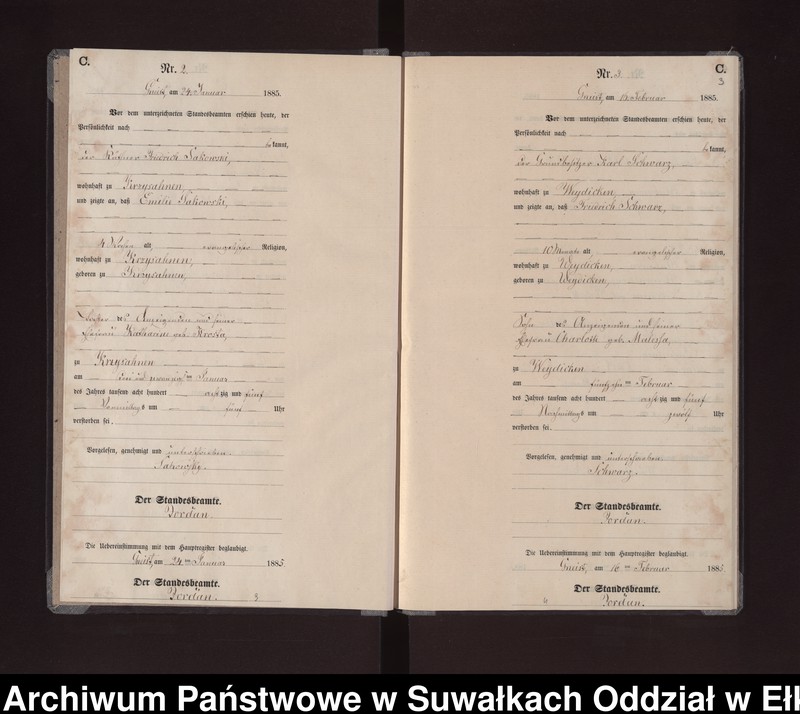 C.
Nr. 2
am 24. Januar 1885.
Vor dem unterzeichneten Standesbeamten erschien heute, der
Persönlichkeit nach
bekannt,
der Sakowski,
wohnhaft zu Krzysahnen
und zeigte an, daß Emilie Sakowski,
4 Wochen alt, evangelischer Religion,
wohnhaft zu Krzysahnen,
geboren zu Krzysahnen,
Tochter des Anzeigenden und seiner
Ehefrau Katharine geb.
zu Krzysahnen
am drei und zwanzigsten Januar
des Jahres tausend acht hundert achtzig und fünf
Vormittags um fünf Uhr
verstorben sei.
Vorgelesen, genehmigt und unterschrieben.
Sakowsky.
Der Standesbeamte.
Jordan.
Die Uebereinstimmung mit dem Hauptregister beglaubigt.
am 24ten Januar 1885
Der Standesbeamte.
Jordan.
3
C.
3
Nr. 3
am 16. Februar 1885.
Vor dem unterzeichneten Standesbeamten erschien heute, der
Persönlichkeit nach
bekannt,
der Grundbesitzer Karl Schwarz,
wohnhaft zu Weydicken
und zeigte an, daß Friedrich Schwarz,
10 Monate alt evangelischer Religion,
wohnhaft zu Weydicken,
geboren zu Weydicken,
Sohn des Anzeigenden und seiner
Ehefrau Charlotte geb.
zu Weydicken
am fünfzehnten Februar
des Jahres tausend acht hundert achtzig und fünf
Nachmittags um zwölf Uhr
verstorben sei.
Vorgelesen, genehmigt und unterschrieben.
Schwarz.
Der Standesbeamte.
Jordan.
Die Uebereinstimmung mit dem Hauptregister beglaubigt.
am 16ten Februar 1885.
Der Standesbeamte.
4 Jordan.
Archiwum Państwowe w Suwałkach Oddział w Ełk